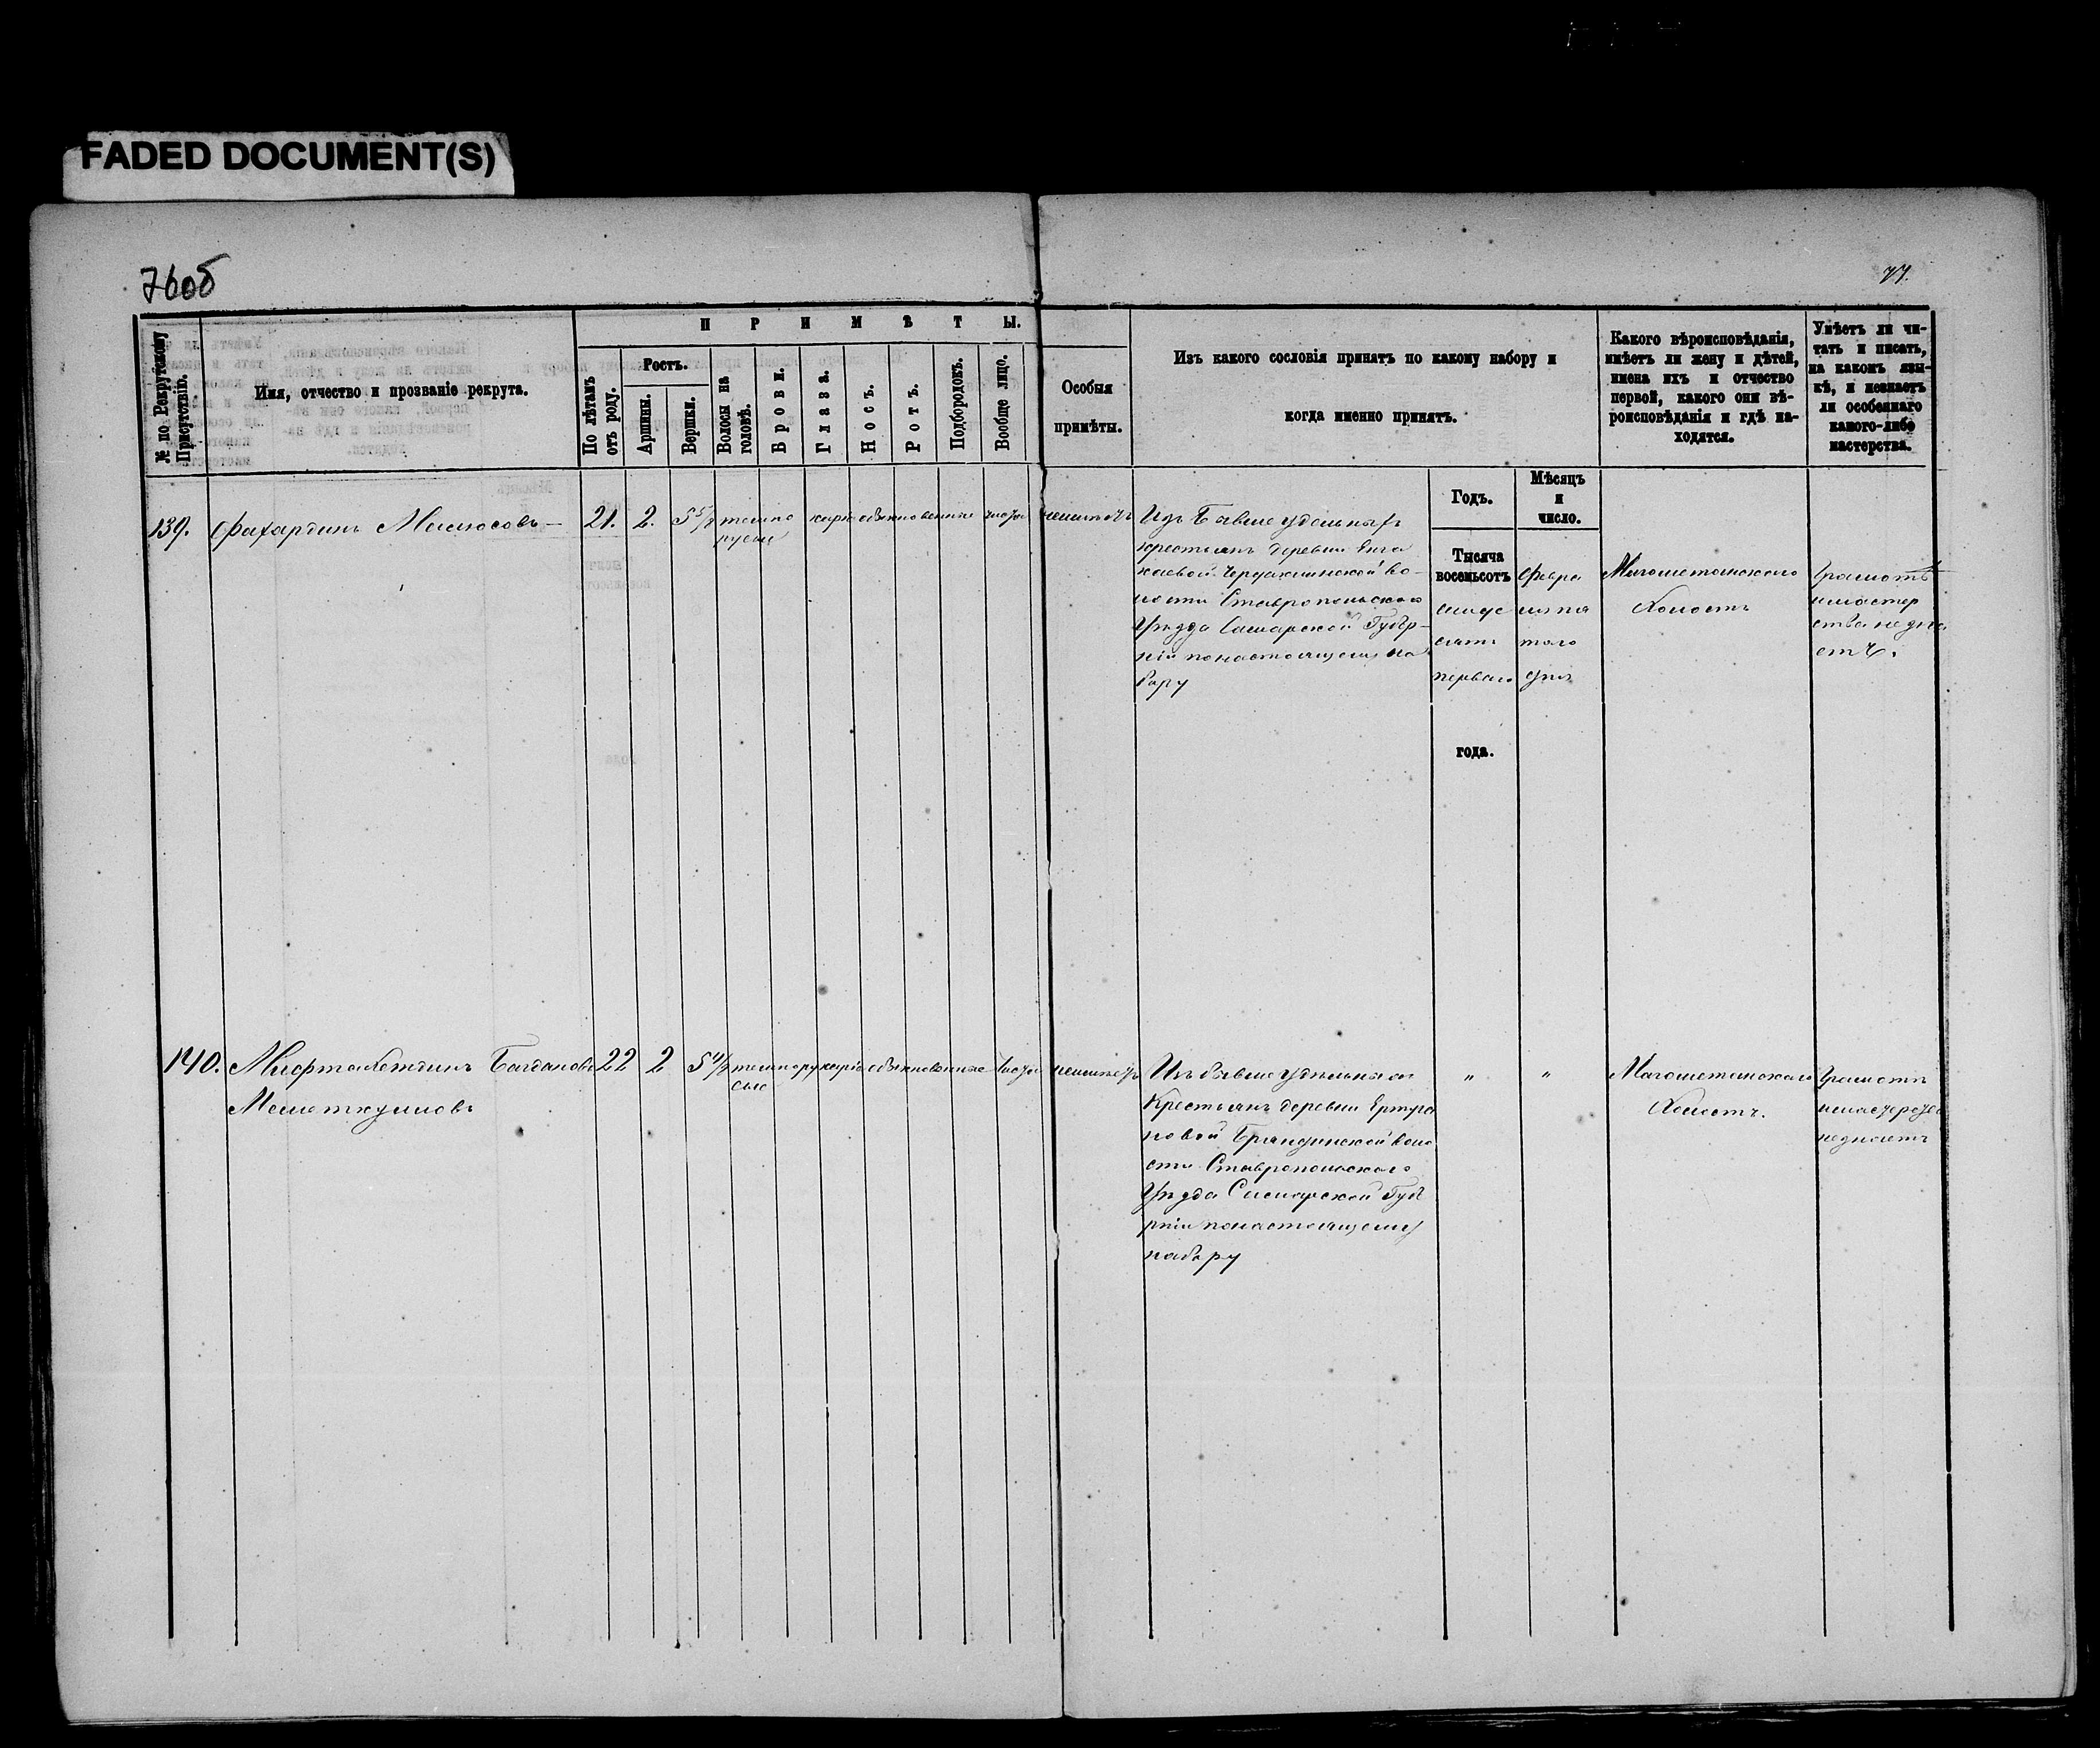 FADED DOCUMENT(S)
76об
77.
№ по Рекрутскому Присутствію.
Имя, отчество и прозваніе рекрута.
ПРИМѢТЫ.
По лѣтамъ отъ роду.
Ростъ.
Аршины.
Вершки.
Волосы на головѣ.
Брови.
Глаза.
Носъ.
Ротъ.
Подбородокъ.
Вообще лицо.
Особыя
примѣты.
Изъ какого сословія принятъ по какому набору и
когда именно принятъ.
Какого вѣроисповѣданія,
имѣетъ ли жену и дѣтей,
имена ихъ и отчество
первой, какого они вѣ-
роисповѣданія и гдѣ на-
ходятся.
Умѣетъ ли чи-
тать и писать,
на какомъ язы-
кѣ, и незнаетъ
ли особеннаго
какого-либо
мастерства.
Годъ.
Мѣсяцъ
и
число.
139. Фахардинъ 21. 2. темно каріе обыкновенные чисто неимѣетъ
русые
Изъ бывше удельныхъ
крестьянъ деревни
во-
лости Ставропольскаго
Уѣзда Самарской Губер-
ніи понастоящему на
бору
Тысяча
восемьсотъ
семьде
сятъ
перваго
года.
Февра
ля пя
таго
дня
Магометанскаго
Холостъ
Грамотѣ
имастер
ства незна
етъ.
140. Багдановъ 22 2 темнору каріе обыкновенные чисто неимѣетъ
сые
Изъ бывше удельныхъ
Крестьянъ деревни
новой воло
сти Ставропольскаго
Уѣзда Самарской Губе
рніи понастоящему
набору
"
"
Магометанскаго
Холостъ.
Грамотѣ
имастерства
незнаетъ